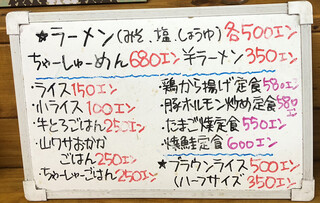 ★ラーメン(みそ、塩、しょうゆ)各500エン
ちゃーしゅーめん680エン 半ラーメン350エン
・ライス150エン
・小ライス100エン
・牛とろごはん250エン
・山ワサおかか
ごはん250エン
・ちゃーしゅーごはん250エン
・鶏から揚げ定食580エン
・豚ホルモン炒め定食580エン
・たまご焼定食550エン
・焼鮭定食600エン
★ブラウンライス500エン
(ハーフサイズ350エン